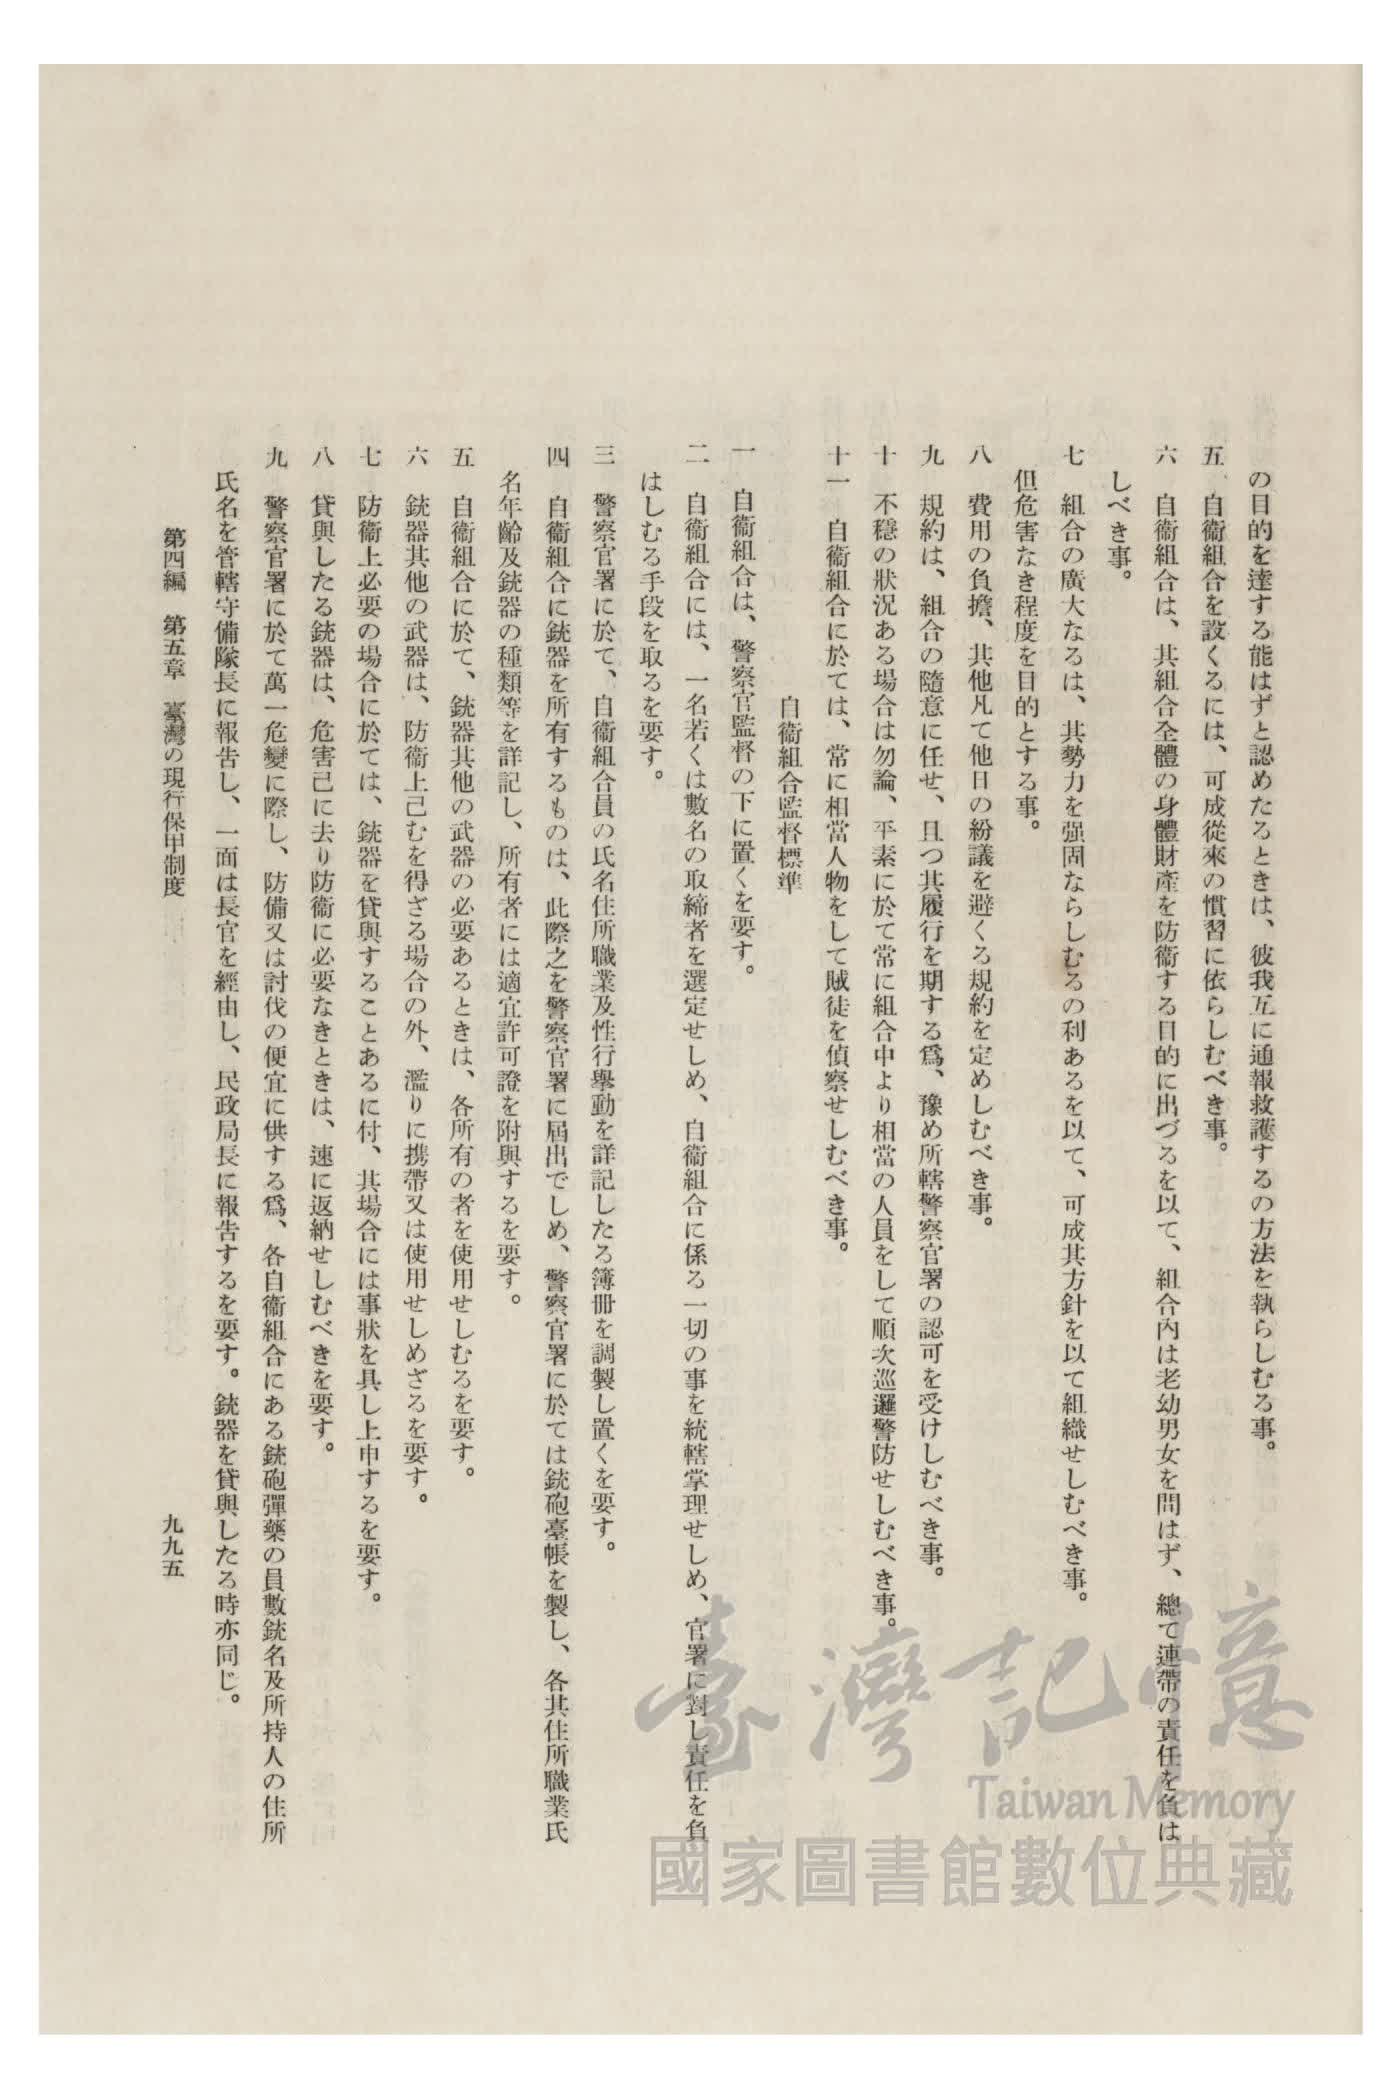 の目的を達する能はずと認めたるときは、彼我互に通報救護するの方法を執らしむる事。
五　自衞組合を設くるには、可成從來の慣習に依らしむべき事。
六　自衞組合は、其組合全體の身體財產を防衞する目的に出づるを以て、組合內は老幼男女を問はず、總て連帶の責任を負は
しべき事。
七　組合の廣大なるは、其勢力を强固ならしむるの利あるを以て、可成其方針を以て組織せしむべき事。
但危害なき程度を目的とする事。
八　費用の負擔、其他凡て他日の紛議を避くる規約を定めしむべき事。
九　規約は、組合の隨意に任せ、且つ其履行を期する爲、豫め所轄警察官署の認可を受けしむべき事。
十　不穩の狀況ある場合は勿論、平素に於て常に組合中より相當の人員をして順次巡邏警防せしむべき事。
十一　自衞組合に於ては、常に相當人物をして賊徒を偵察せしむべき事。
自衞組合監督標準
一　自衞組合は、警察官監督の下に置くを要す。
二　自衞組合には、一名若くは數名の取締者を選定せしめ、自衞組合に係る一切の事を統轄掌理せしめ、官署に對し責任を負
はしむる手段を取るを要す。
三　警察官署に於て、自衞組合員の氏名住所職業及性行擧動を詳記したる簿冊を調製し置くを要す。
四　自衞組合に銃器を所有するものは、此際之を警察官署に屆出でしめ、警察官署に於ては銃砲臺帳を製し、各其住所職業氏
名年齡及銃器の種類等を詳記し、所有者には適宜許可證を附與するを要す。
五　自衞組合に於て、銃器其他の武器の必要あるときは、各所有の者を使用せしむるを要す。
六　銃器其他の武器は、防衞上己むを得ざる場合の外、濫りに携帶又は使用せしめざるを要す。
七　防衞上必要の場合に於ては、銃器を貸與することあるに付、其場合には事狀を具し上申するを要す。
八　貸與したる銃器は、危害己に去り防衞に必要なきときは、速に返納せしむべきを要す。
九　警察官署に於て萬一危變に際し、防備又は討伐の便宜に供する爲、各自衞組合にある銃砲彈藥の員數銃名及所持人の住所
氏名を管轄守備隊長に報吿し、一面は長官を經由し、民政局長に報吿するを要す。銃器を貸與したる時亦同じ。
第四編　第五章　臺灣の現行保甲制度
九九五
臺灣記憶
Taiwan Memory
國家圖書館數位典藏